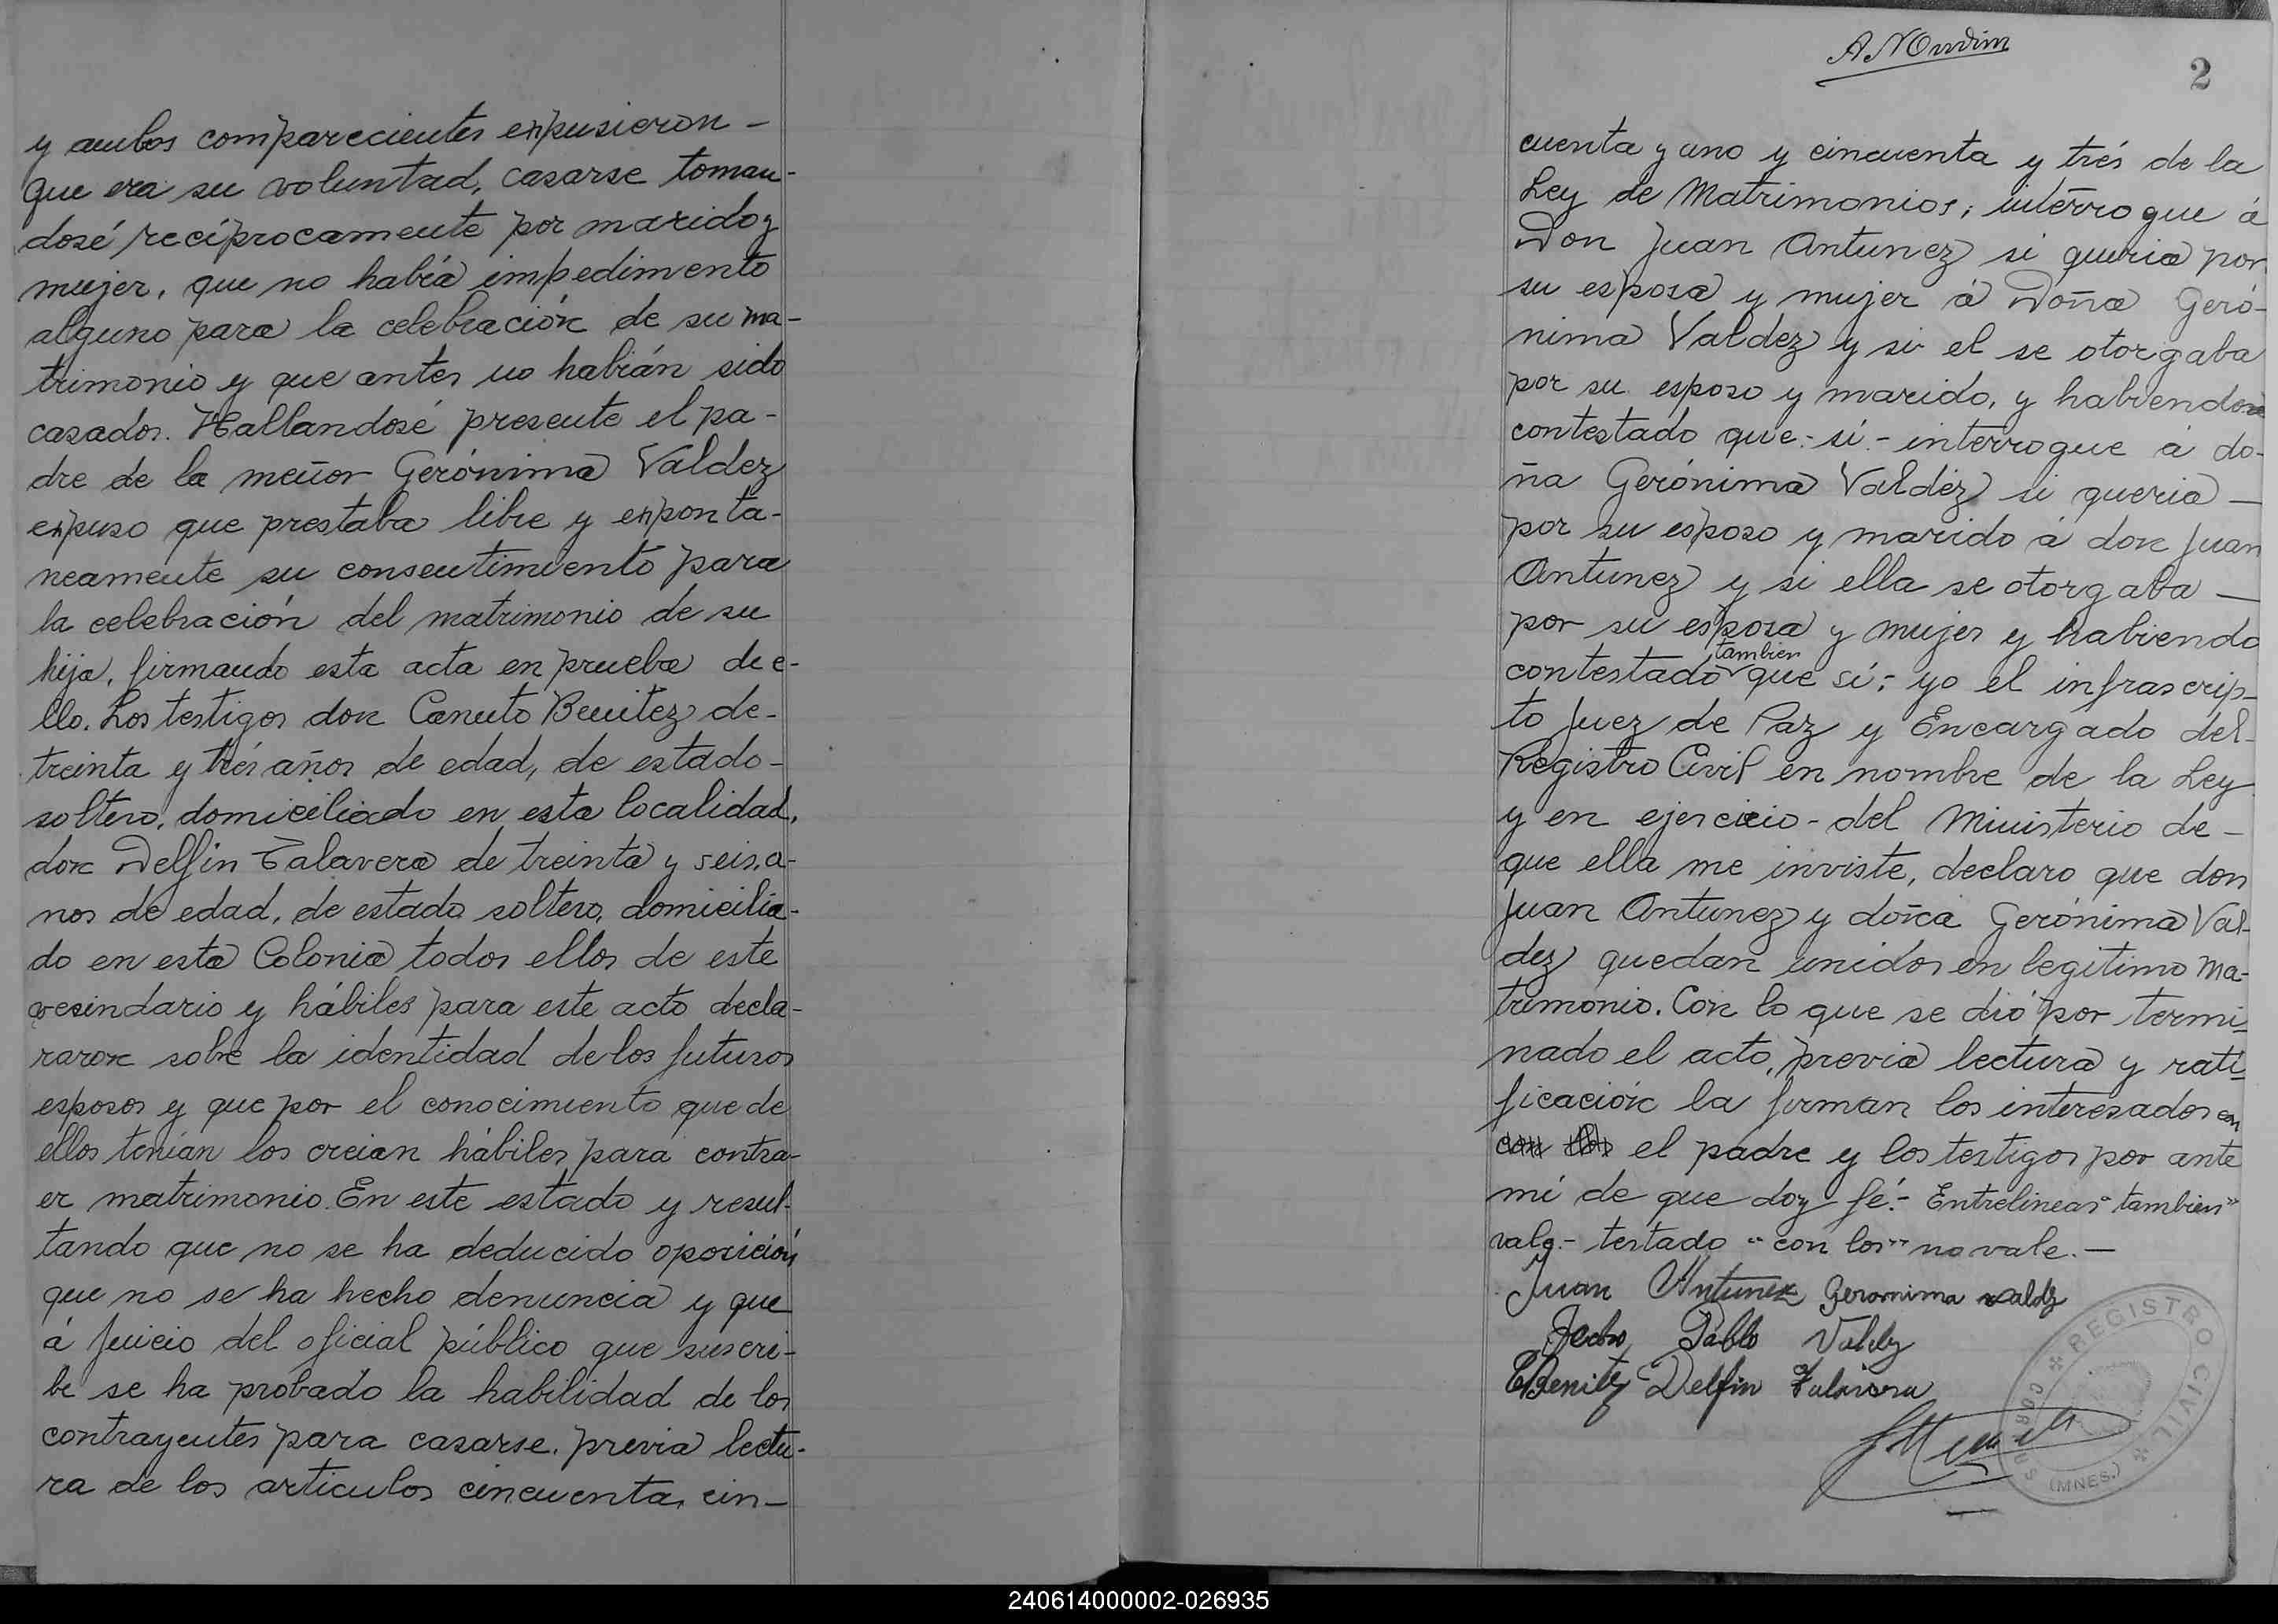 y ambos comparecientes expusieron -
que era su voluntad, casarse toman-
dosé recíprocamente por marido y
mujer, que no había impedimento
alguno para la celebración de su ma-
trimonio y que antes no habián sido
casados. Hallandosé presente el pa-
dre de la meñor Gerónima Valdez
expuso que prestaba libre y exponta-
neamente su consentimiento para
la celebración del matrimonio de su
hija, firmando esta acta en prueba de e-
llo. Los testigos don Canuto Benitez de-
treinta y trés años de edad, de estado-
soltero, domiciliado en esta localidad,
don Delfín Talavera de treinta y seis, a-
nos de edad, de estado soltero, domicilia-
do en esta Colonia todos ellos de este
vesindario y hábiles para este acto decla-
raron sobre la identidad de los futuros
esposos y que por el conocimiento que de
ellos tenían los creian hábiles para contra-
er matrimonio. En este estado y resul-
tando que no se ha deducido oposición
que no se ha hecho denuncia y que
á juicio del oficial público que suscri-
be se ha probado la habilidad de los
contrayentes para casarse, previa lectu-
ra de los articulos cincuenta, cin-
2
cuenta y uno y cincuenta y trés de la
Ley de Matrimonios; interrogue á
Don Juan Antunez si queria por
su esposa y mujer á Doña Geró-
nima Valdez y si el se otorgaba
por su esposo y marido, y habiendose
contestado que - sí - interrogue á do-
ña Gerónima Valdéz si queria -
por su esposo y marido á don Juan
Antunez y si ella se otorgaba -
por su esposa y mujer y habiendo
tambien
contestado que sí; - yo el infrascrip-
to Juez de Paz y Encargado del-
Registro Civil en nombre de la Ley
y en ejercicio - del Ministerio de -
que ella me inviste, declaro que don
Juan Antunez y doña Gerónima Val-
dez quedan unidos en legitimo ma-
trimonio. Con lo que se dió por termi-
nado el acto, previa lectura y rati-
ficación la firman los interesados con
con los el padre y los testigos por ante
mí de que doy fé. - Entrelineas "tambien"
vale. - testado "con los" no vale. -
Juan Antunez Geronima valdz
Pablo Valdez
CBenitez Delfin Talavera
REGISTRO CIVIL
(MNES.)
240614000002-026935